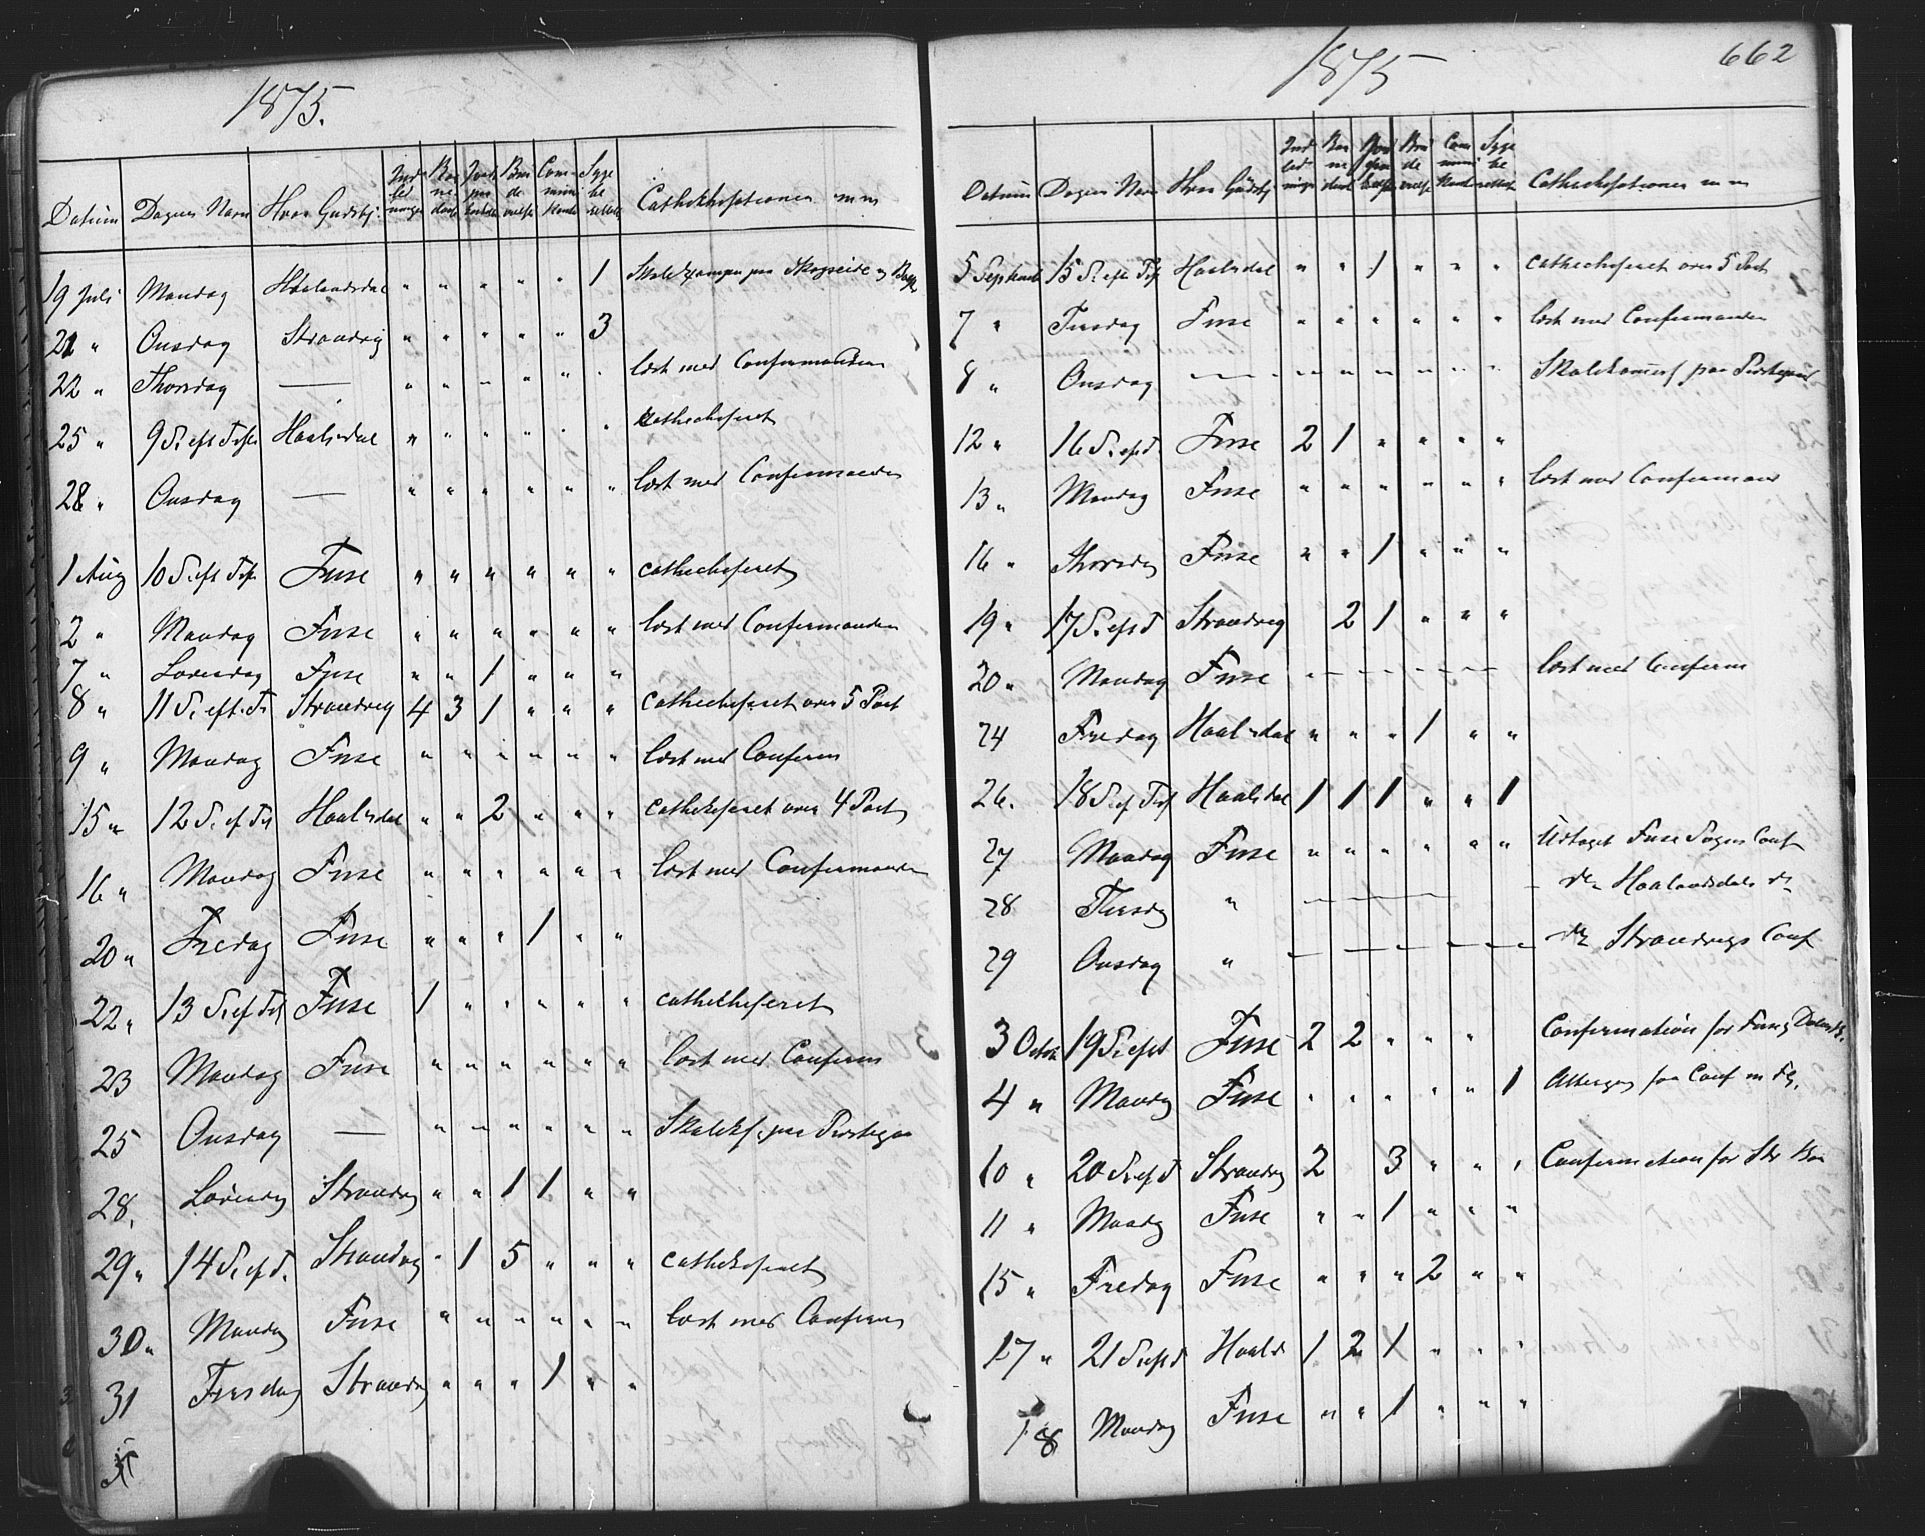 1875.
Datum Dagens Navn Hvor Gudstj. Indledninger Barnedaab Jordpaakastelse Brudevielse Communikanter Sygebesøgelse Cathekhesationer mm
19 Juli Mandag Haalandsdal " " " " " 1 Skoleexamen paa Skogseide og
21 " Onsdag Strandvig " " " " " 3
22 " Thorsdag — " " " " " " læst med Confirmanden
25 " 9 S. eft Trfe Haalsdal " " " " " " Cathecheseret
28 " Onsdag — " " " " " " læst med Confirmanden
1 Aug 10 S. eft Tref Fuse " " " " " " catheckeseret
2 " Mandag Fuse " " " " " " læst med Confirmanden
7 " Løverdag Fuse " " 1 " " "
8 " 11 S. eft. Tr Strandvig 4 3 1 " " " cathecheseret over 5 Part
9 " Mandag Fuse " " " " " " læst med Conferm
15 " 12 S. ef Tr Haalsdal " " 2 " " " cathekeseret over 4 Part
16 " Mandag Fuse " " " " " " læst med Confermanden
20 " Fredag Fuse " " " 1 " "
22 " 13 S. ef Tref Fuse 1 " " " " " cathecheseret
23 Mandag Fuse " " " " " " læst med Conferm
25 Onsdag — " " " " " " Skoleks. paa Prestegaa
28. Løverdg Strandvg " " 1 1 " "
29 " 14 S. ef T. Strandvg " 1 5 " " " cathekeseret
30 " Mandag Fuse " " " " " " læst med Conferm
31 Tirsdag Strandvg " " " 1 " "
1875
662
Datum Dagens Navn Hvor Gudstj Indledninger Barnedaab Jordpaakastelse Brudevielse Communikanter Sygebesøgelse Cathechesationer m m
5 Septemb 15 S. eft Tref Haalsdal " " 1 " " " cathecheseret over 5 Part
7 " Tirsdag Fuse " " " " " " læst med Confirmanden
8 " Onsdag — Skoleksamen paa Prestegaard
12 " 16 S. eft. Fuse 2 1 " " " "
13 " Mandag Fuse " " " " " " læst med Confermand
16 " Thorsdg Fuse " " 1 " " "
19 " 17 S. eft T Strandvig 2 1 " " "
20 " Mandag Fuse — læst med Conferm
24 Fredag Haalsdal " " " 1 " "
26. 18 S. ef Tref Haalsdal 1 1 1 " " 1
27 Mandag Fuse " " " " " " Udtaget Fuse Sogns Conf
28 Tirsdg " — do Haalandsdals do
29 Onsdag " — do Strandvigs Conf
3 Octob 19 S. eft Fuse 2 2 " " " Confermation for Fuse og
4 " Mandg Fuse " " " " " 1 Altergang for Conf m Fl.
10 " 20 S. eft T Strandvg 2 3 " " " Confermation for Str
11 " Mandg Fuse " " 1 " " "
15 " Fredag Fuse " " " 2 " "
17 " 21 S. eft T Haalsd 1 2 1 " " "
18 Mandag Fuse " " 1 " " "